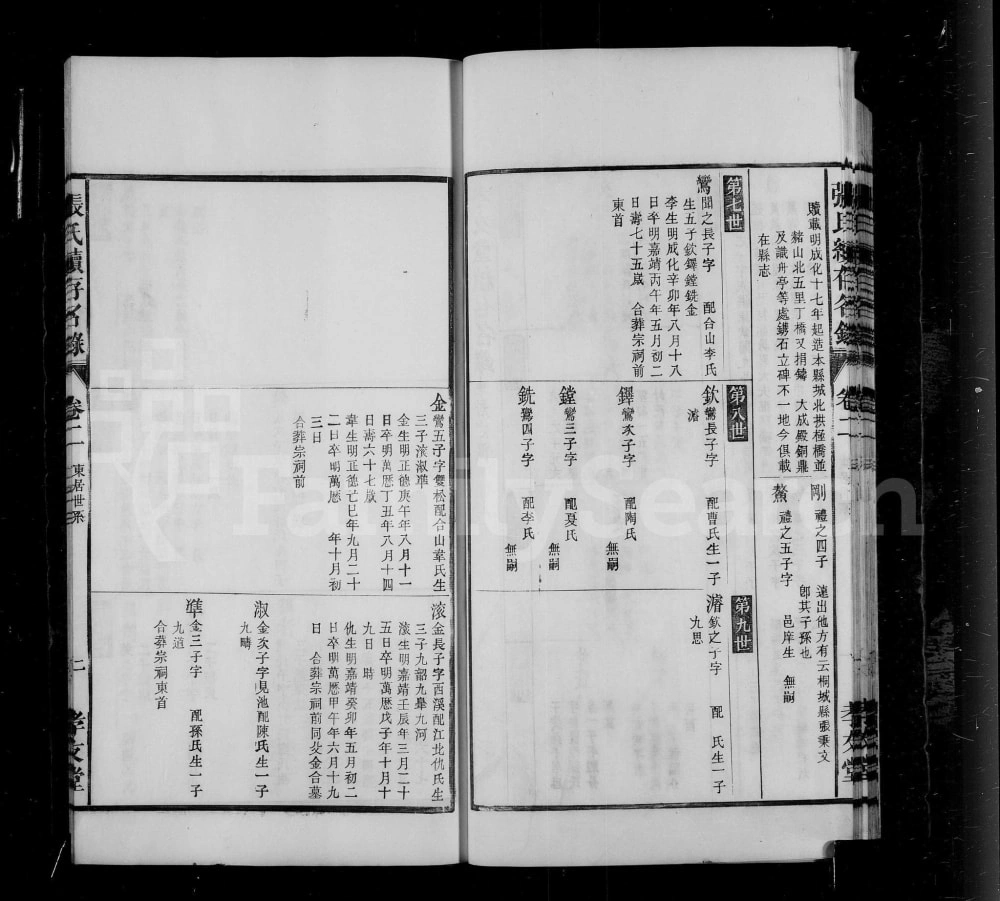 張氏續存名錄
卷二
孝友堂
贖載明成化十七年起造本縣城北拱極橋並
豬山北五里丁橋又捐鑄 大成殿銅鼎
及識舟亭等處鐫石立碑不一地今俱載
在縣志
剛 禮之四子 遠出他方有云桐城縣張秉文
卽其子孫也
鰲 禮之五子字 邑庠生 無嗣
第七世
鸞 聞之長子字 配合山李氏
生五子欽鐸鏜銑金
李生明成化辛卯年八月十八
日卒明嘉靖丙午年五月初二
日壽七十五歲 合葬宗祠前
東首
第八世
欽 鸞長子字 配曹氏生一子
濬
鐸 鸞次子字 配陶氏
無嗣
鏜 鸞三子字 配夏氏
無嗣
銑 鸞四子字 配李氏
無嗣
第九世
濬 欽之子字 配 氏生一子
九思
金 鸞五子字雙松配合山韋氏生
三子滚淑準
金生明正德庚午年八月十一
日卒明萬曆丁丑年八月十四
日壽六十七歲
韋生明正德己巳年九月二十
二日卒明萬曆 年十月初
三日
合葬宗祠前
滚 金長子字西溪配江北仇氏生
三子九韶九臯九河
滚生明嘉靖壬辰年三月二十
五日卒明萬曆戊子年十月十
九日 時
仇生明嘉靖癸卯年五月初二
日卒明萬曆甲午年六月十九
日 合葬宗祠前同父金合墓
淑 金次子字見池配陳氏生一子
九疇
準 金三子字 配孫氏生一子
九道
合葬宗祠東首
張氏續存名錄
卷二
東居世系
二
孝友堂
FamilySearch